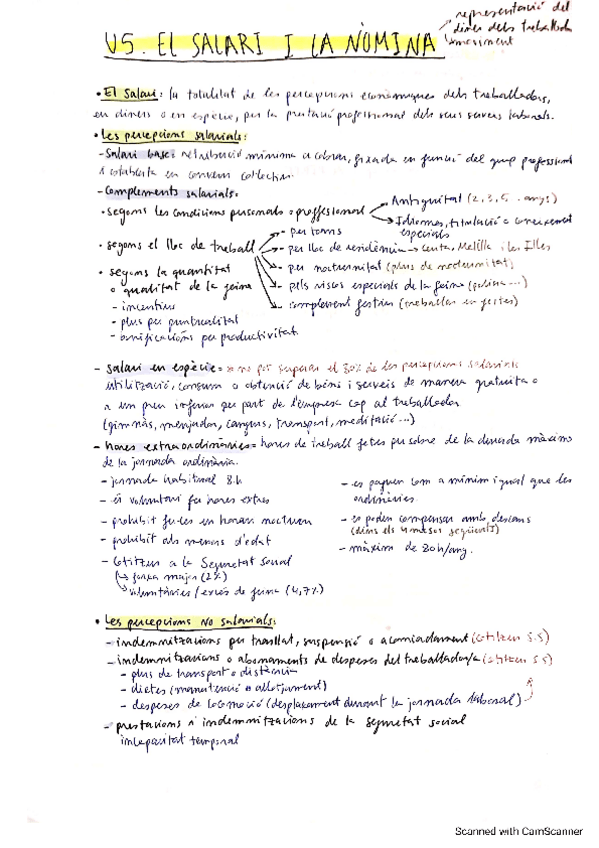 representació del
diner dels treballadors
U5. EL SALARI I LA NÒMINA
• El Salari: la totalitat de les percepcions econòmiques dels treballadors,
en diners o en espècie, per la prestació professional dels seus serveis laborals.
• Les percepcions salarials:
- Salari base: retribució mínima a cobrar, fixada en funció del grup professional
i establerta en conveni col·lectiu.
- Complements salarials:
• segons les condicions personals o professionals
Antiguitat (2, 3, 5... anys)
Idiomes, titulació o coneixement
especials
• segons el lloc de treball
- per torns
- per lloc de residència → Ceuta, Melilla i les Illes
- per nocturnitat (plus de nocturnitat)
- pels riscos especials de la feina
- complement festius (treballar en festes)
• segons la quantitat
o qualitat de la feina
- incentius
- plus per puntualitat
- bonificacions per productivitat
- Salari en espècie= * no pot superar el 30% de les percepcions salarials
utilització, consum o obtenció de béns i serveis de manera gratuita o
a un preu inferior per part de l'empresa cap al treballador
(gimnàs, menjador, cangurs, transport, meditació...)
- hores extraordinàries= hores de treball fetes per sobre de la durada màxima
de la jornada ordinària.
- jornada habitual 8h
- és voluntari fer hores extres
- prohibit fer-les en horari nocturn
- prohibit als menors d'edat
- Cotitzen a la Seguretat Social
↳ força major (2%)
↳ voluntàries / excés de feina (4,7%)
- es paguen com a mínim igual que les
ordinàries
- es poden compensar amb descans
(dins els 4 mesos següents)
- màxim de 80h/any.
• Les percepcions no salarials:
- indemnitzacions per trasllat, suspensió o acomiadament (cotitzen S.S)
- indemnitzacions o abonaments de despeses del treballador/a (cotitzen S.S)
- plus de transport o distància
- dietes (manutenció o allotjament)
- despeses de locomoció (desplaçament durant la jornada laboral)
- prestacions i indemnitzacions de la seguretat social
incapacitat temporal
Scanned with CamScanner